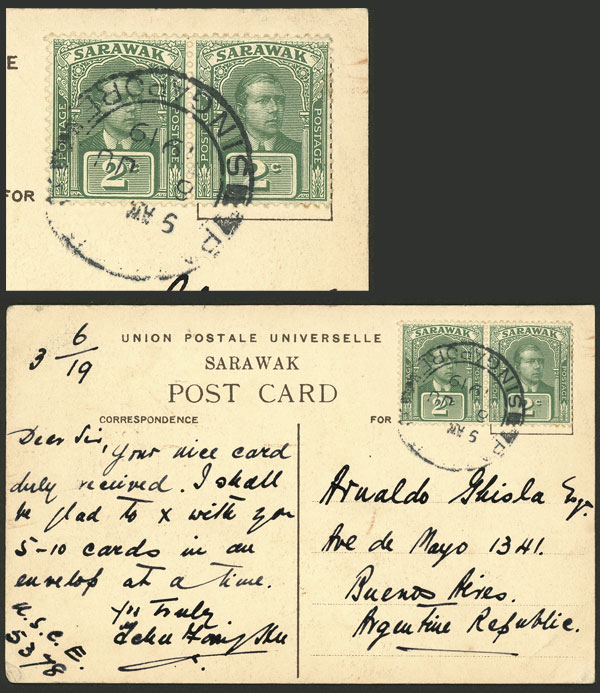 E
FOR
SARAWAK SARAWAK
POSTAGE POSTAGE POSTAGE POSTAGE
2c 2c
SINGAPORE
5 AM
JU
1919
UNION POSTALE UNIVERSELLE
SARAWAK
POST CARD
CORRESPONDENCE
FOR
SARAWAK SARAWAK
POSTAGE POSTAGE POSTAGE POSTAGE
2c 2c
SINGAPORE
5 AM
JU
1919
3 6/19
Dear Sir,
Your nice card
duly received. I shall
be glad to x with you
5-10 cards in an
envelop at a time.
Yrs truly
U.S.C.E.
5378
Arnaldo Ghisla Esq.
Ave de Mayo 1341.
Buenos Aires.
Argentine Republic.